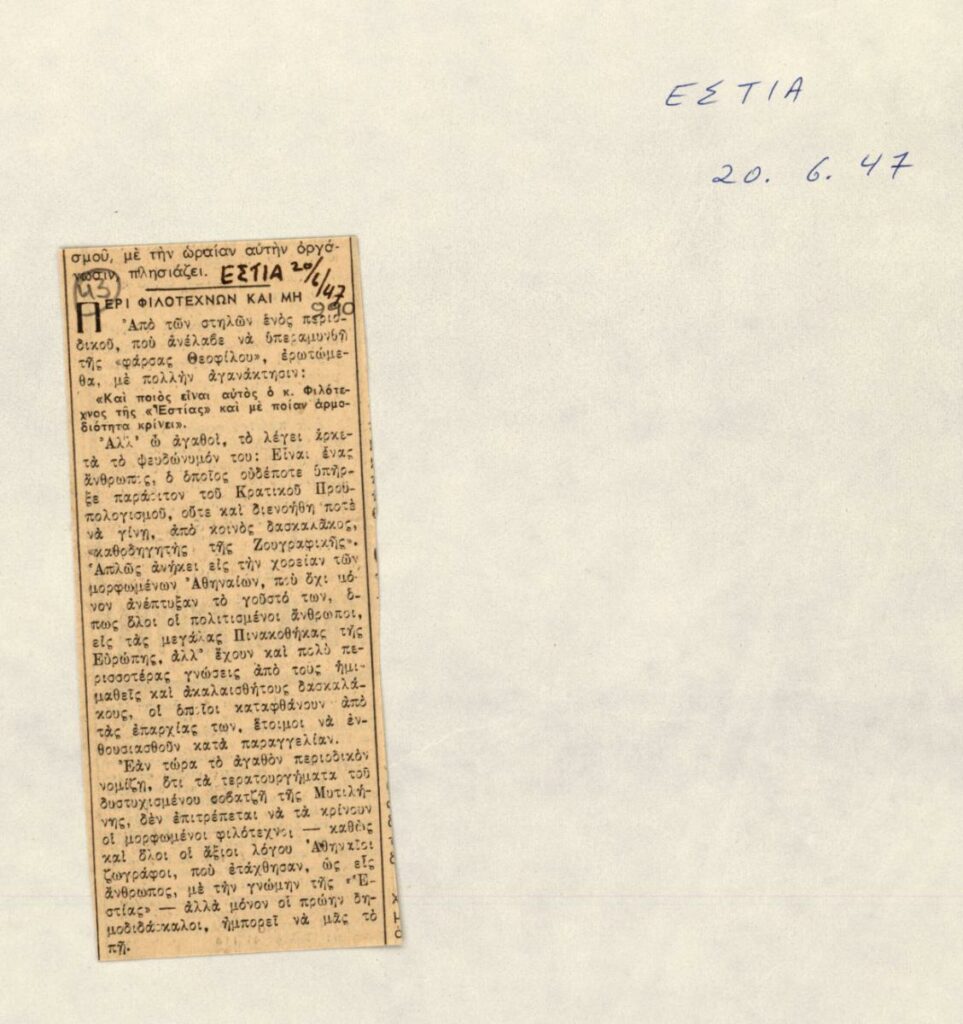 ΕΣΤΙΑ
20. 6. 47
σμοῦ, μὲ τὴν ὡραίαν αὐτὴν ὀργά-
νωσιν, πλησιάζει.
ΕΣΤΙΑ 20/6/47
43
990
ΠΕΡΙ ΦΙΛΟΤΕΧΝΩΝ ΚΑΙ ΜΗ
Ἀπὸ τῶν στηλῶν ἑνὸς περιο-
δικοῦ, ποὺ ἀνέλαβε νὰ ὑπεραμυνθῇ
τῆς «φάρσας Θεοφίλου», ἐρωτώμε-
θα, μὲ πολλὴν ἀγανάκτησιν:
«Καὶ ποιὸς εἶναι αὐτὸς ὁ κ. Φιλότε-
χνος τῆς «Ἑστίας» καὶ μὲ ποίαν ἁρμο-
διότητα κρίνει».
Ἀλλ' ὦ ἀγαθοί, τὸ λέγει ἀρκε-
τὰ τὸ ψευδώνυμόν του: Εἶναι ἕνας
ἄνθρωπος, ὁ ὁποῖος οὐδέποτε ὑπῆρ-
ξε παράσιτον τοῦ Κρατικοῦ Προϋ-
πολογισμοῦ, οὔτε καὶ διενοήθη ποτὲ
νὰ γίνῃ, ἀπὸ κοινὸς δασκαλᾶκος,
«καθοδηγητὴς τῆς Ζωγραφικῆς».
Ἁπλῶς ἀνήκει εἰς τὴν χορείαν τῶν
μορφωμένων Ἀθηναίων, ποὺ ὄχι μό-
νον ἀνέπτυξαν τὸ γοῦστό των, ὅ-
πως ὅλοι οἱ πολιτισμένοι ἄνθρωποι,
εἰς τὰς μεγάλας Πινακοθήκας τῆς
Εὐρώπης, ἀλλ' ἔχουν καὶ πολὺ πε-
ρισσοτέρας γνώσεις ἀπὸ τοὺς ἡμι-
μαθεῖς καὶ ἀκαλαισθήτους δασκαλά-
κους, οἱ ὁποῖοι καταφθάνουν ἀπὸ
τὰς ἐπαρχίας των, ἕτοιμοι νὰ ἐν-
θουσιασθοῦν κατὰ παραγγελίαν.
Ἐὰν τώρα τὸ ἀγαθὸν περιοδικὸν
νομίζῃ, ὅτι τὰ τερατουργήματα τοῦ
δυστυχισμένου σοβατζῆ τῆς Μυτιλή-
νης, δὲν ἐπιτρέπεται νὰ τὰ κρίνουν
οἱ μορφωμένοι φιλότεχνοι — καθὼς
καὶ ὅλοι οἱ ἄξιοι λόγου Ἀθηναῖοι
ζωγράφοι, ποὺ ἐτάχθησαν, ὡς εἷς
ἄνθρωπος, μὲ τὴν γνώμην τῆς «Ἑ-
στίας» — ἀλλὰ μόνον οἱ πρώην δη-
μοδιδάσκαλοι, ἠμπορεῖ νὰ μᾶς τὸ
πῇ.